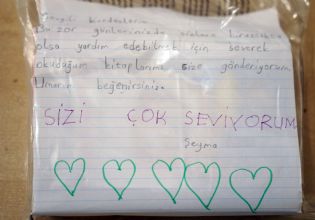 Sevgili kardeşlerim
Bu zor günlerinizde sizlere biraz
olsa yardım edebilmek için severek
okuduğum kitaplarımı size gönderiyorum.
Umarım beğenirsiniz.
SİZİ ÇOK SEVİYORUM
Şeyma